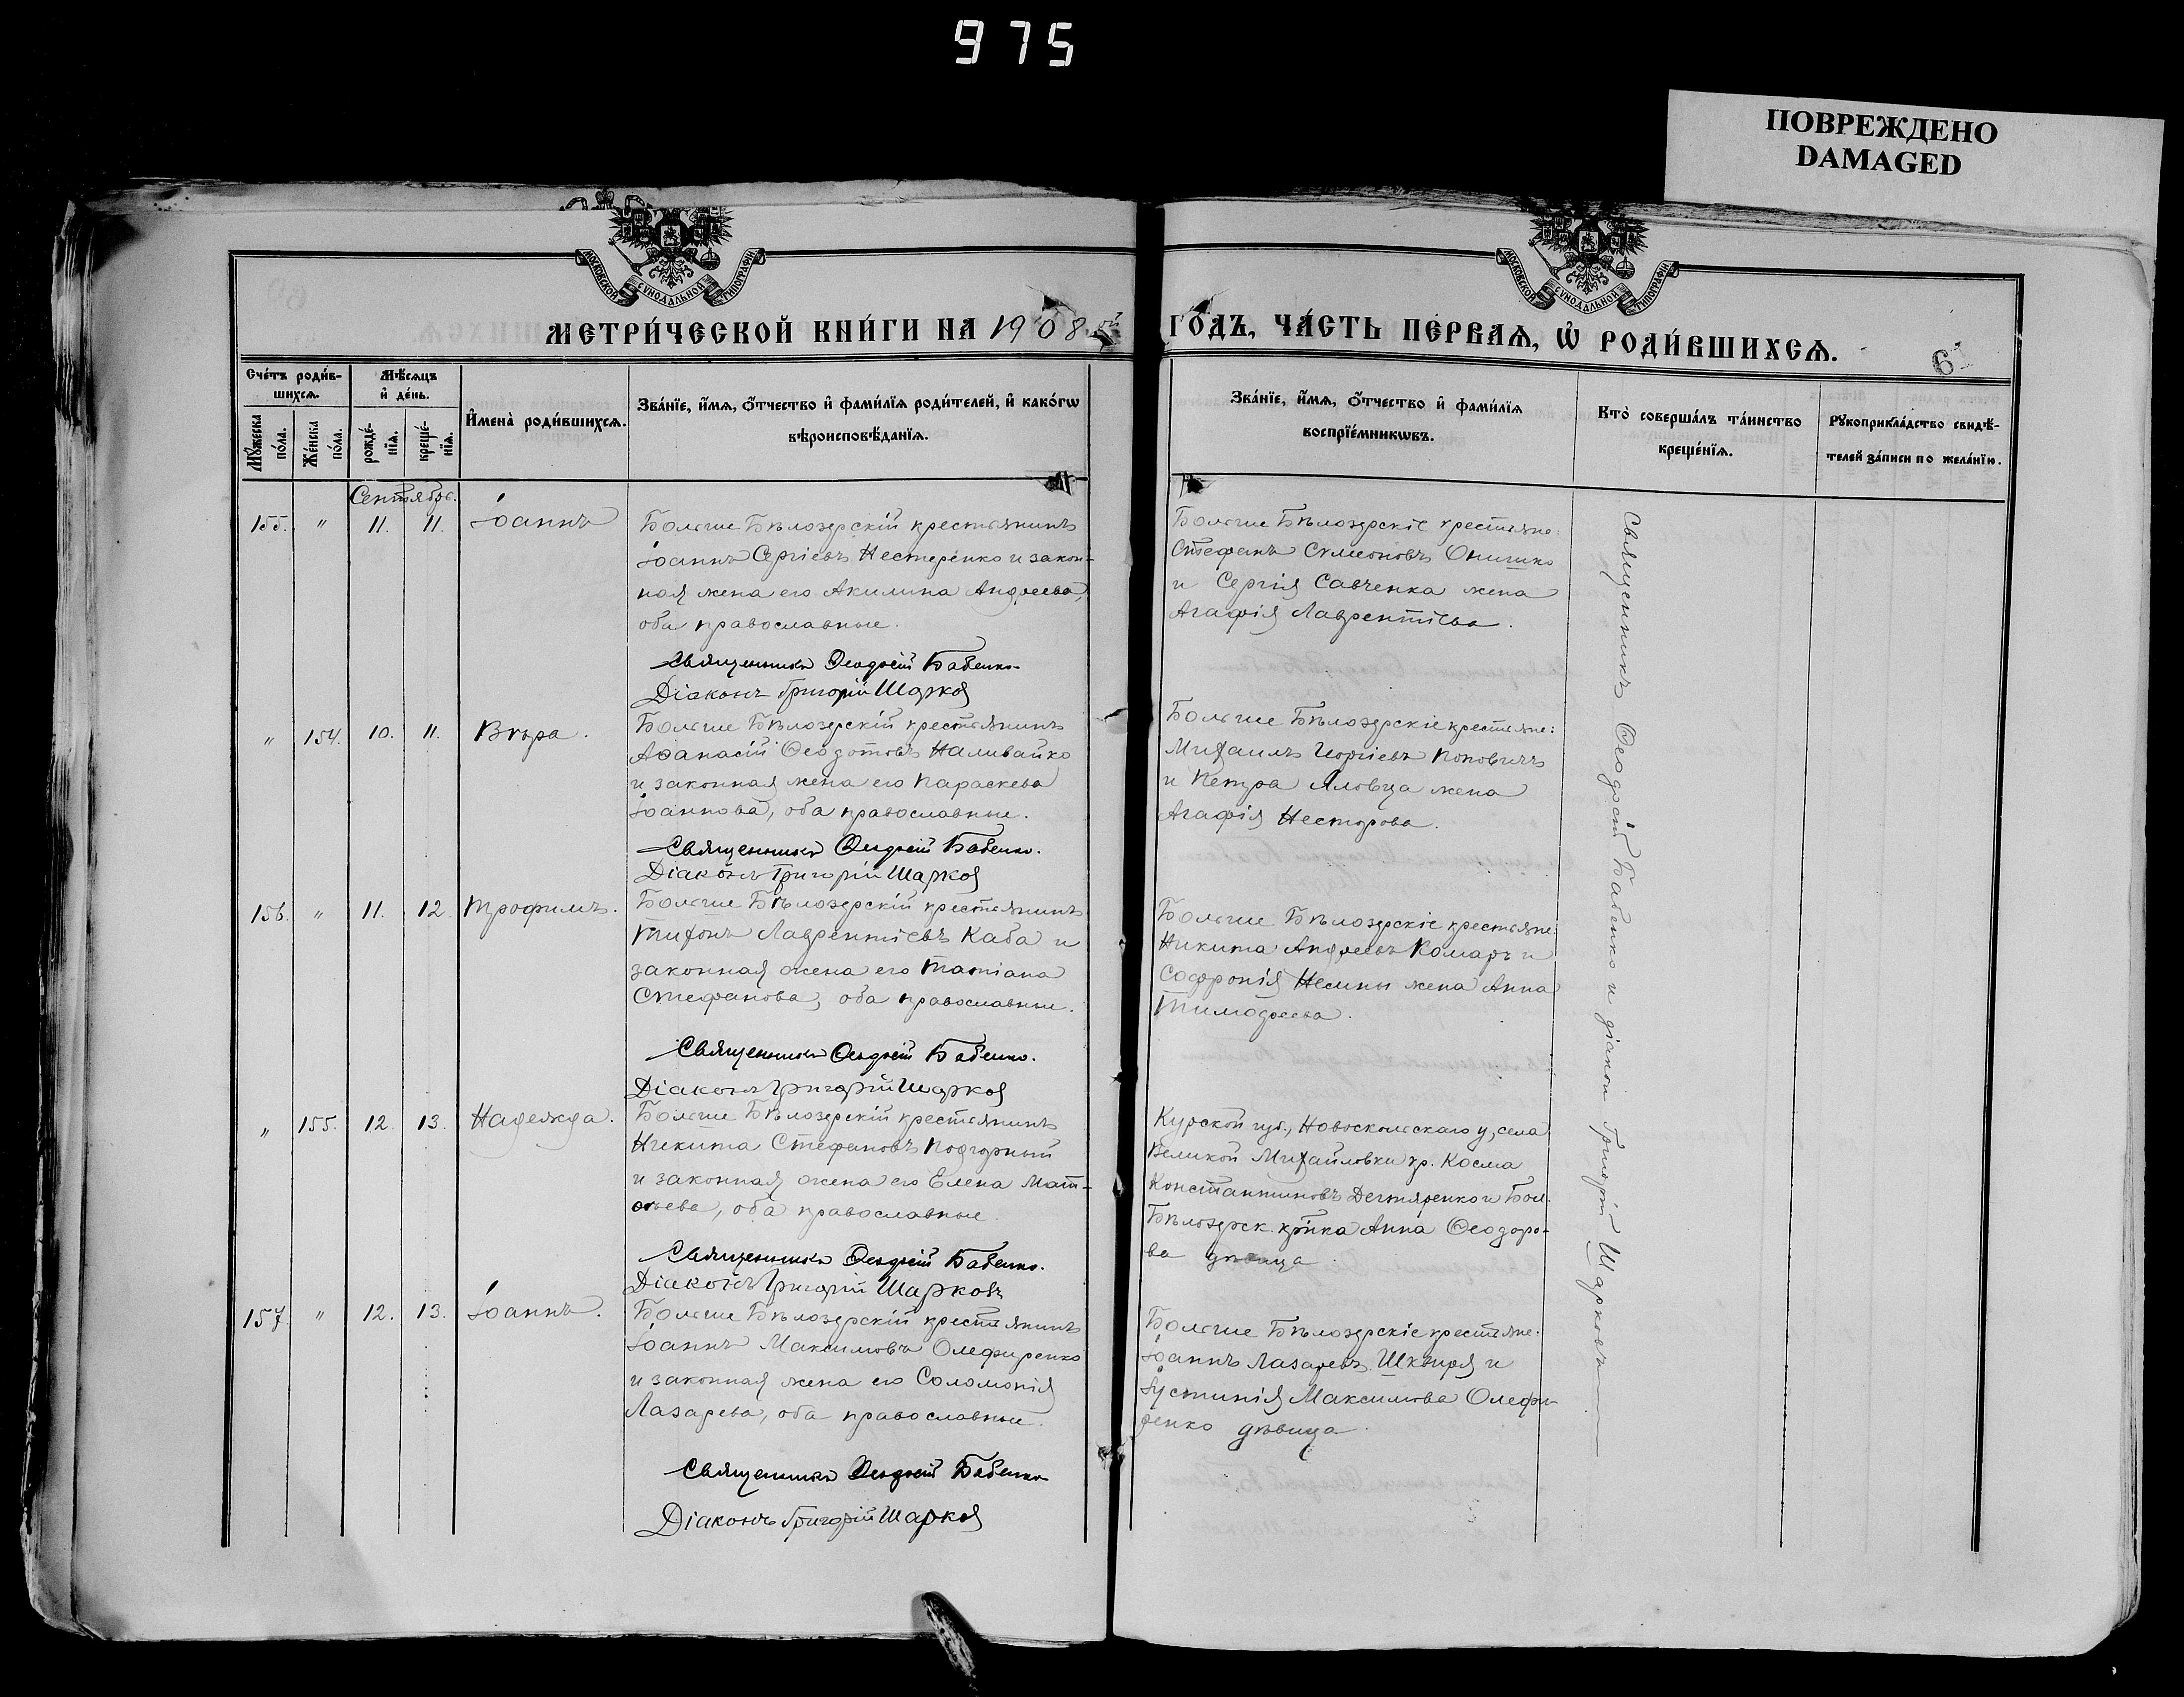 975
ПОВРЕЖДЕНО
DAMAGED
МОСКОВСКОЙ СѴНОДАЛЬНОЙ ТИПОГРАФІИ
МОСКОВСКОЙ СѴНОДАЛЬНОЙ ТИПОГРАФІИ
МЕТРИ́ЧЕСКОЙ КНИ́ГИ НА 1908й
ГО́ДЪ, ЧА́СТЬ ПЕ́РВАѦ, Ѡ РОДИ́ВШИХСѦ.
Сче́тъ роди́в-
шихсѧ.
Мꙋ́жеска по́ла.
Же́нска по́ла.
Мѣ́сѧцъ
и де́нь.
рожде́-
нїѧ.
креще́-
нїѧ.
Имена̀ роди́вшихсѧ.
Зва́нїе, и́мѧ, о́тчество и фами́лїѧ роди́телей, и како́гѡ
вѣроисповѣ́данїѧ.
Зва́нїе, и́мѧ, о́тчество и фами́лїѧ
воспрїе́мникѡвъ.
Кто̀ соверша́лъ та́инство
креще́нїѧ.
Рꙋкоприкла́дство свидѣ́-
телей за́писи по жела́нїю.
Сентябрь.
155. " 11. 11. Іоаннъ
Больше Бѣлозерскій крестьянинъ
Іоаннъ Сергіевъ Нестеренко и закон-
ная жена его Акилина Андреева,
оба православные.
Священникъ Ѳеодосій Бабенко.
Діаконъ Григорій Шарков
Больше Бѣлозерскіе крестьяне:
Стефанъ Сѵмеоновъ Онишко
и Сергія Савченка жена
Агафія Лаврентіева.
" 154. 10. 11. Вѣра.
Больше Бѣлозерскій крестьянинъ
Аѳанасій Ѳеодотовъ Наливайко
и законная жена его Параскева
Іоаннова, оба православные.
Священникъ Ѳеодосій Бабенко.
Діаконъ Григорій Шарков
Больше Бѣлозерскіе крестьяне:
Михаилъ Георгіевъ Поповичъ
и Петра Яловца жена
Агафія Несторова.
156. " 11. 12. Трофимъ.
Больше Бѣлозерскій крестьянинъ
Тихонъ Лаврентіевъ Каба и
законная жена его Татіана
Стефанова, оба православные.
Священникъ Ѳеодосій Бабенко.
Діаконъ Григорій Шарков
Больше Бѣлозерскіе крестьяне:
Никита Андреевъ Комаръ и
Софронія Немны жена Анна
Тимоѳеева.
" 155. 12. 13. Надежда.
Больше Бѣлозерскій крестьянинъ
Никита Стефановъ Подгорный
и законная жена его Елена Мат-
ѳеева, оба православные.
Священникъ Ѳеодосій Бабенко.
Діаконъ Григорій Шарковъ
Курской губ., Новоскольскаго у, села
Великой Михайловки кр. Косма
Константиновъ Дегтяренко и Бол.
Бѣлозерск. кр-нка Анна Ѳеодоро-
ва дѣвица.
157. " 12. 13. Іоаннъ.
Больше Бѣлозерскій крестьянинъ
Іоаннъ Максимовъ Олефиренко
и законная жена его Соломонія
Лазарева, оба православные.
Священникъ Ѳеодосій Бабенко
Діаконъ Григорій Шарков
Больше Бѣлозерскіе крестьяне:
Іоаннъ Лазаревъ Шкиря и
Іустинія Максимова Олефи-
ренко дѣвица.
Священникъ Ѳеодосій Бабенко и діакон Григорій Шарковъ